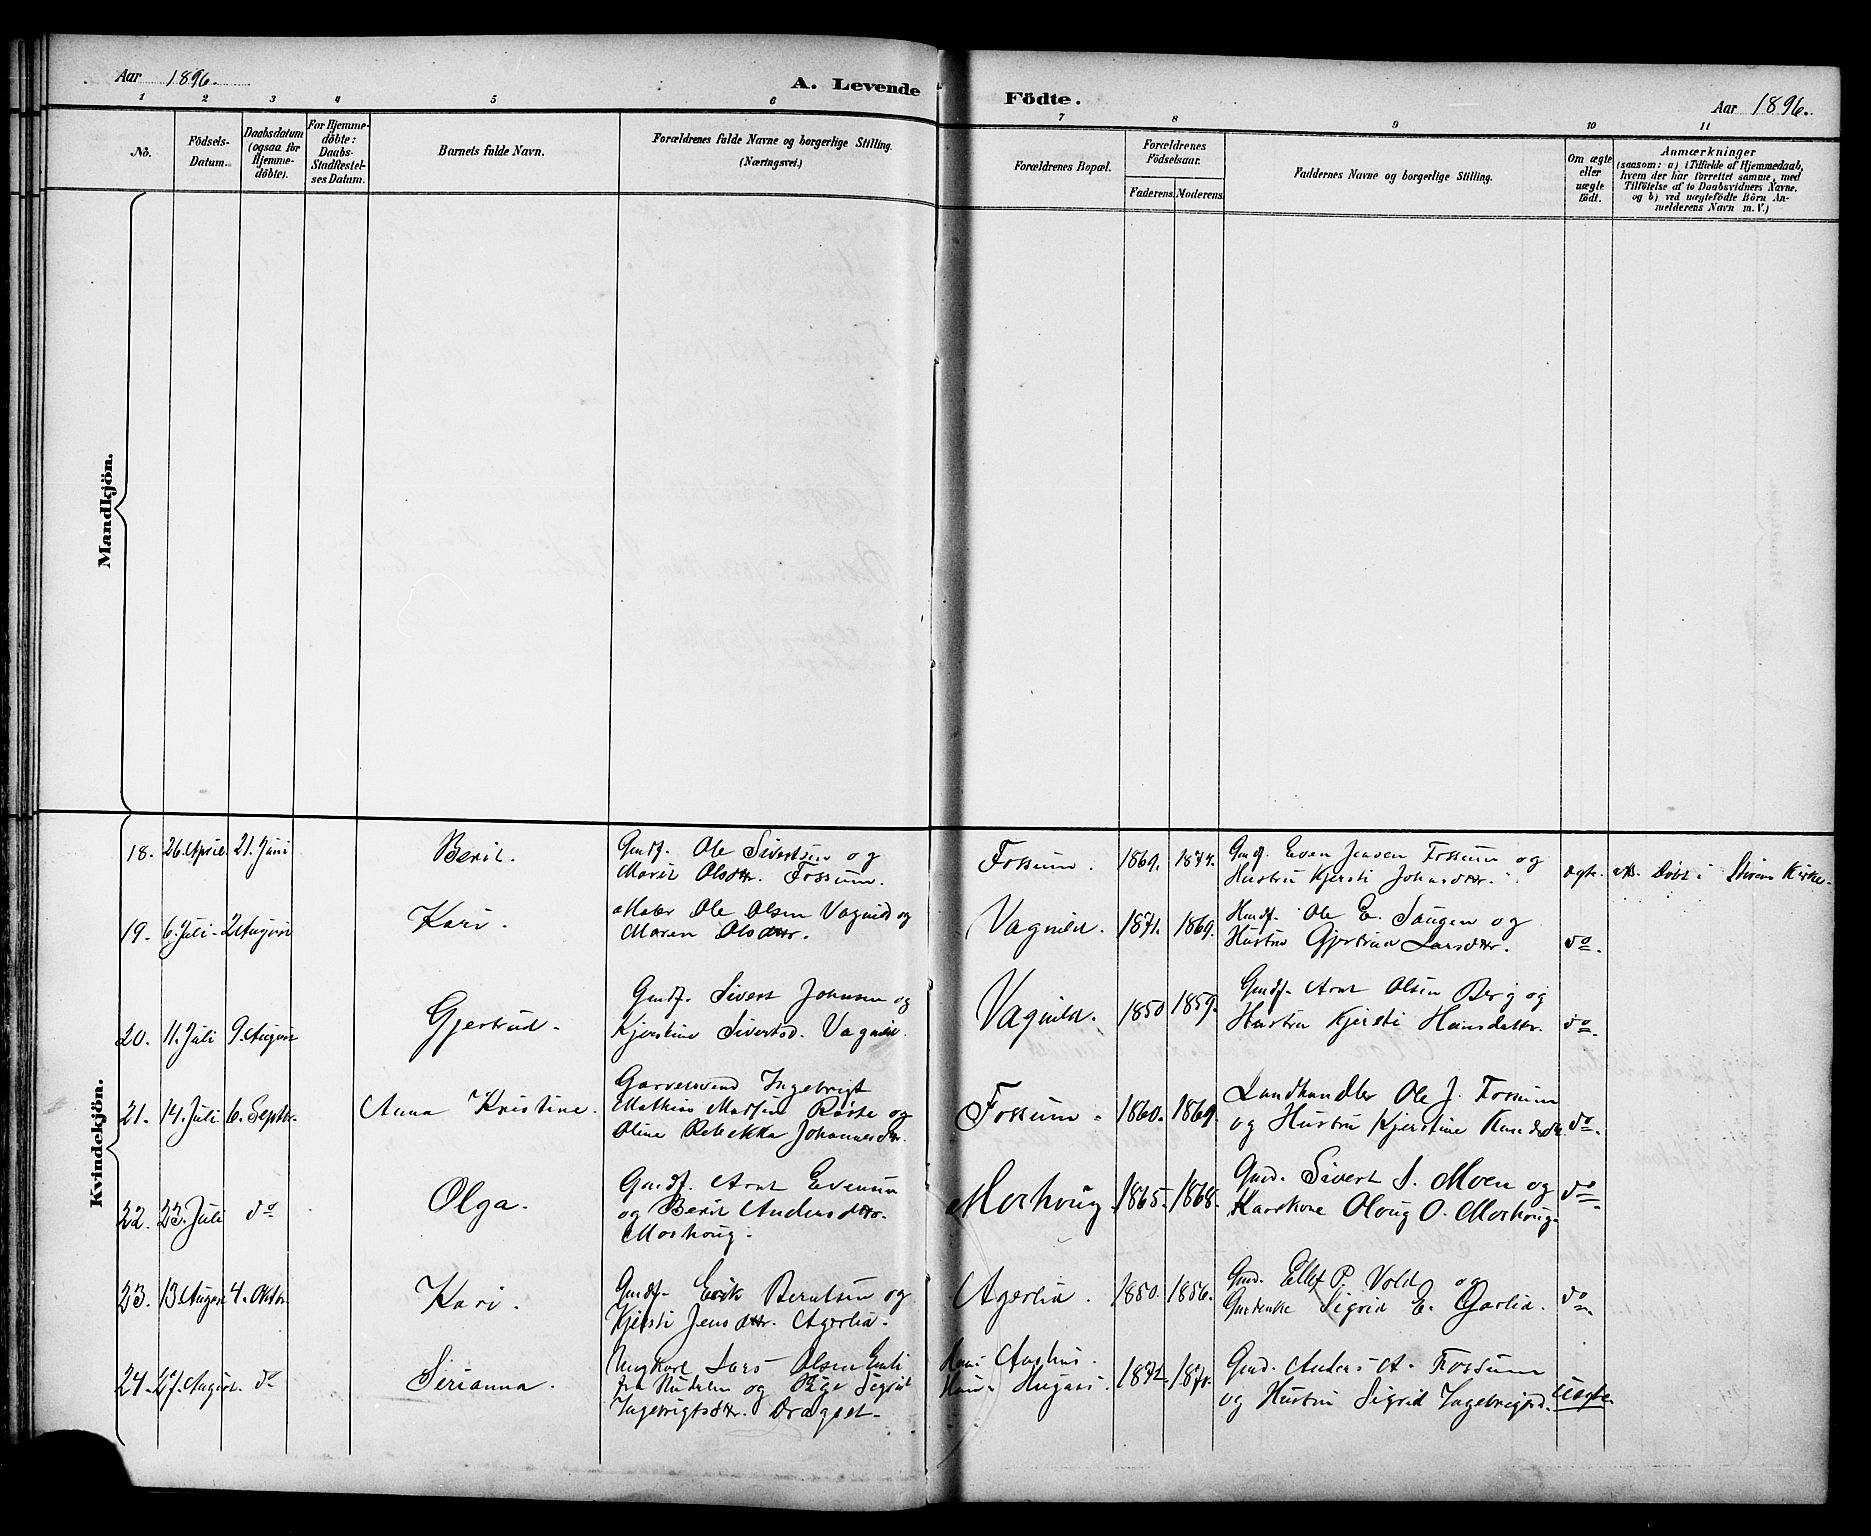 Aar 1896.
A. Levende Födte.
Aar 1896.
1 2 3 4 5 6 7 8 9 10 11
No.
Födsels-Datum.
Daabsdatum (ogsaa for Hjemme-döbte).
For Hjemme-döbte: Daabs-Stadfæstel-ses Datum.
Barnets fulde Navn.
Forældrenes fulde Navne og borgerlige Stilling.
(Næringsvei.)
Forældrenes Bopæl.
Forældrenes Födselsaar.
Faderens. Moderens.
Faddernes Navne og borgerlige Stilling.
Om ægte eller uægte födt.
Anmærkninger
(saasom: a) i Tilfælde af Hjemmedaab,
hvem der har forrettet samme, med
Tilföielse af to Daabsvidners Navne.
og b) ved uægtefödte Börn An-
melderens Navn m. V.)
Mandkjön.
Kvindekjön.
18. 26. April. 21. Juni Berit. Gmdf. Ole Sivertsen og
Marit Olsdtr. Fossum.
Fossum. 1869. 1874. Gmdf. Even Jensen Fossum og
Hustru Kjersti Johnsdtr. ægte. Döbt i Störens Kirke.
19. 6. Juli 2 August Kari. Maler Ole Olsen Vagnild og
Maren Olsdtr.
Vagnild. 1871. 1869. Ole E. Saugen og
Hustru Gjertrud Larsdtr. do
20. 11. Juli 9. August Gjertrud. Gmdf. Sivert Johnsen og
Kjerstine Sivertsd. Vagnild.
Vagnild. 1850 1859. Gmdf. Arnt Olsen Berg og
Hustru Kjersti Hansdatter. do
21. 14. Juli 6. Septbr. Anna Kristine. Garversvend Ingebrigt
Mathias Madsen og
Oline Rebekka Johannesdtr.
Fossum. 1860. 1869. Landhandler Ole J. Fossum
og Hustru Kjerstine do
22. 23. Juli do Olga. Gmdf. Arnt Evensen
og Berit Andersdtr.
Moshoug.
Moshoug. 1865. 1868. Gmd. Sivert S. Moen og
Olaug O. Moshoug. do
23. 13 August 4. Oktbr Kari. Gmdf. Erik Berntsen og
Kjersti Jensdtr. Agerlid.
Agerlid. 1850. 1856. Gmd. Ellef P. Vold og
Sigrid E. Garlid. do
24. 27. August. do Serianna. Ungkarl Lars Olsen
fra og Pige Sigrid
Ingebrigtsdtr. Dragset.
1872. Gmd. Anders A. Fossum
og Hustru Sigrid Ingebrigtsd. Uægte.